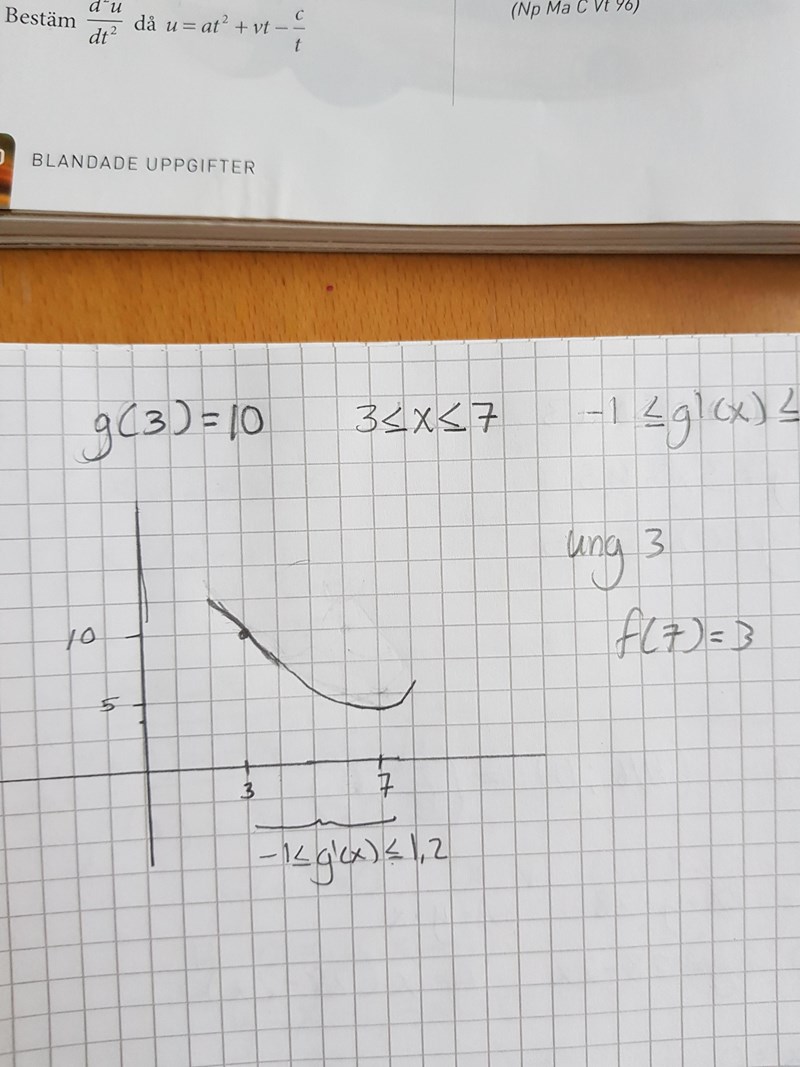 Bestäm d²u/dt² då u = at² + vt − c/t
(Np Ma C Vt 96)
BLANDADE UPPGIFTER
g(3)=10 3≤x≤7 -1≤g'(x)≤
ung 3
f(7)=3
10
5
3 7
-1≤g'(x)≤1,2